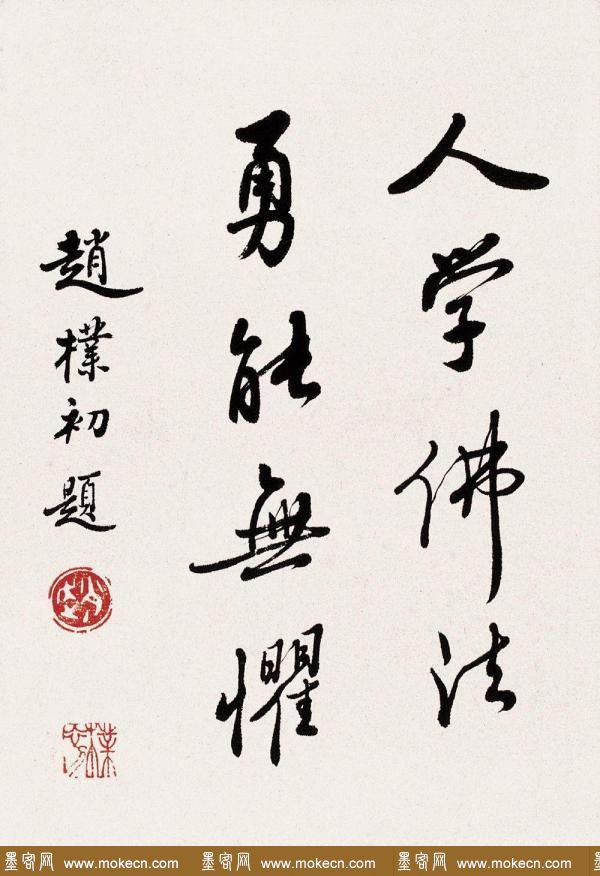 人学佛法
勇能無懼
趙樸初題
墨客网 www.mokecn.com 墨客网 www.mokecn.com 墨客网 www.mokecn.com